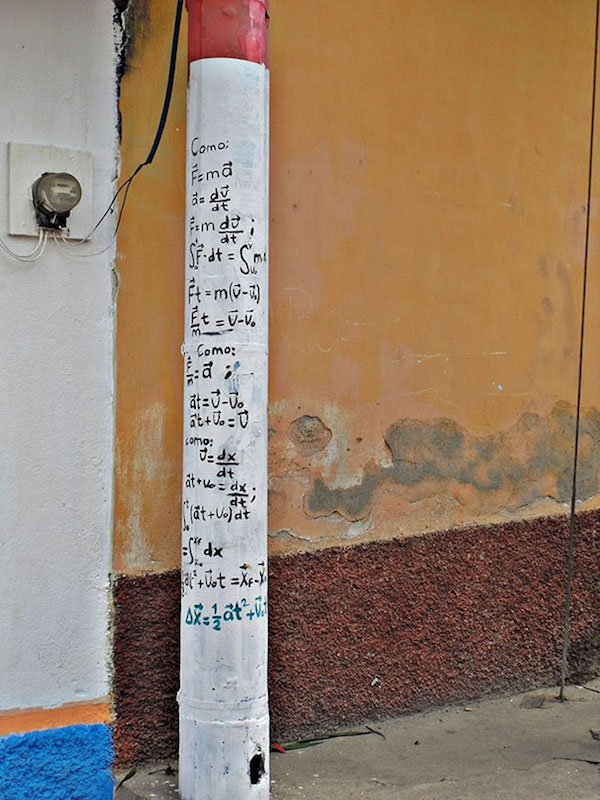 Como:
F⃗=ma⃗
a⃗=dv⃗/dt
F⃗=m dv⃗/dt ;
∫₀ᵗF⃗·dt = ∫ᵥ₀ᵛ m
F⃗t = m(v⃗-v⃗₀)
F⃗/m t = v⃗-v⃗₀
Como:
F⃗/m=a⃗ ;
a⃗t=v⃗-v⃗₀
a⃗t+v⃗₀=v⃗
como:
v⃗=dx⃗/dt
a⃗t+v₀=dx⃗/dt;
∫₀ᵗ(a⃗t+v⃗₀)dt
=∫dx
a⃗t²+v⃗₀t =x⃗F-x⃗
Δx⃗=½a⃗t²+v⃗